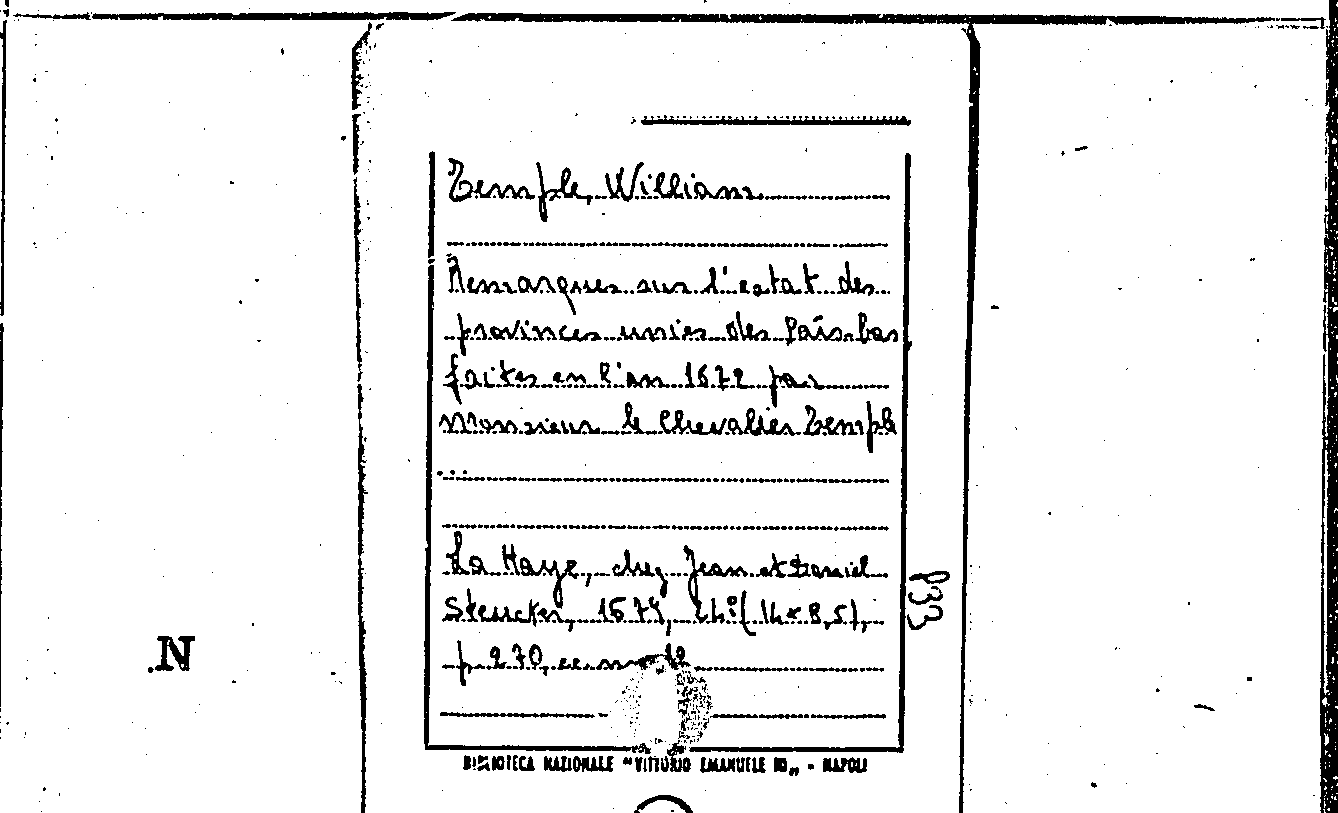 Temple, William
Remarques sur l'estat des
provinces unies des País-bas
faites en l'an 1672 par
Monsieur le Chevalier Temple
...
La Haye, chez Jean et Daniel
Steucker, 1674, 24º (14x8,5),
p. 270, cc. nn. 12
BIBLIOTECA NAZIONALE "VITTORIO EMANUELE III" - NAPOLI
P33
N